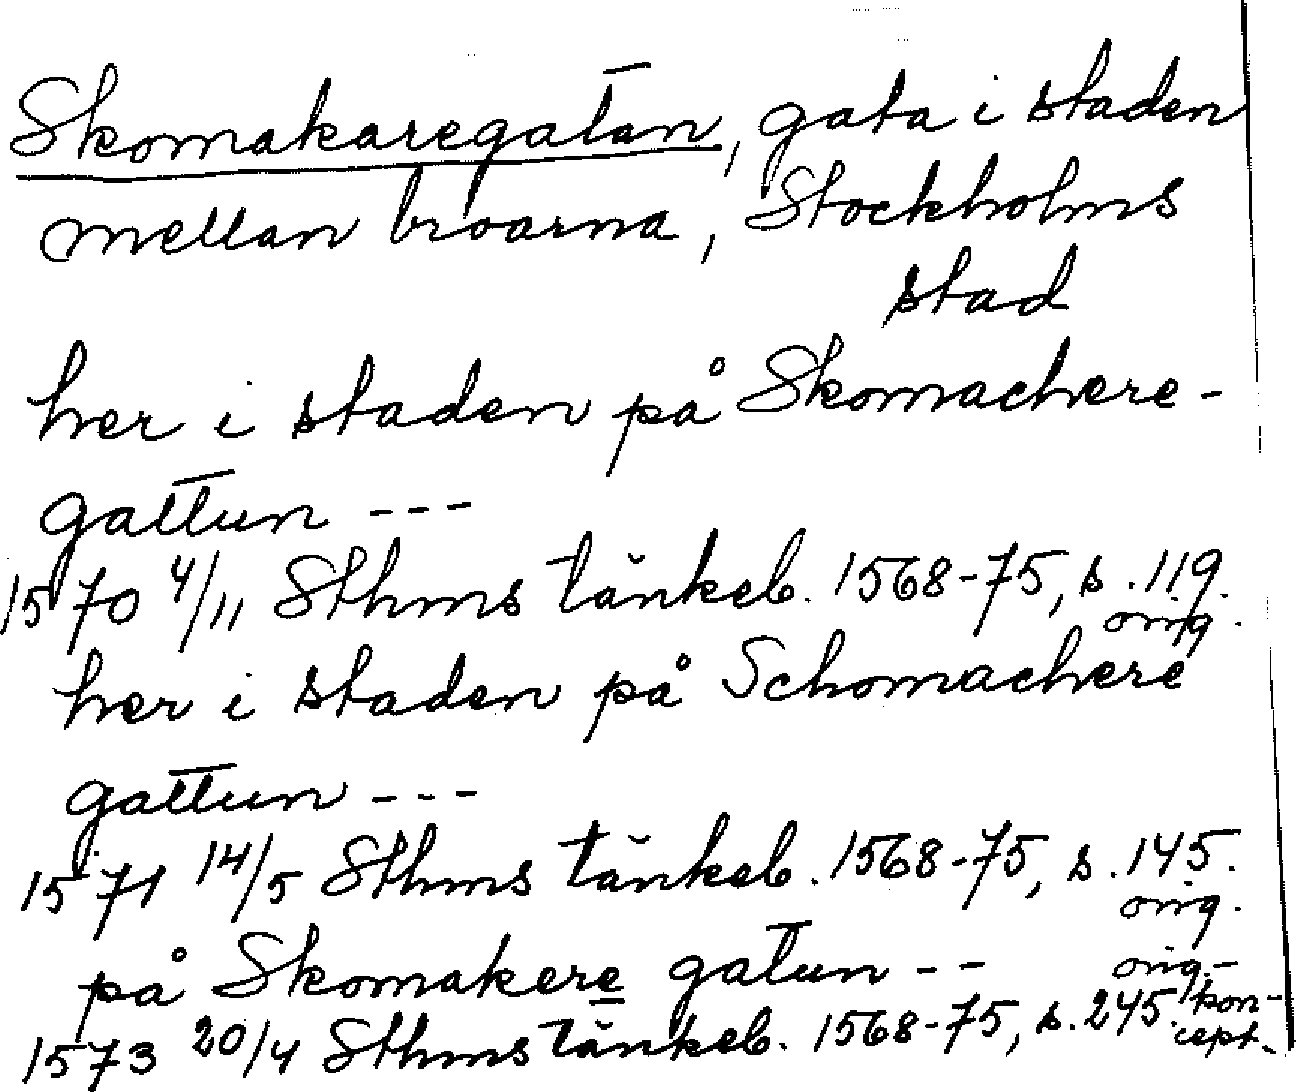 Skomakaregatan, gata i staden
mellan broarna, Stockholms
stad
her i staden på Skomachere-
gattun ---
1570 4/11 Sthms tänkeb. 1568-75, s. 119.
orig.
her i staden på Schomachere
gattun ---
1571 14/5 Sthms tänkeb. 1568-75, s. 145.
orig.
på Skomakere gatun --
1573 20/4 Sthms tänkeb. 1568-75, s. 245. orig.-
kon-
cept.